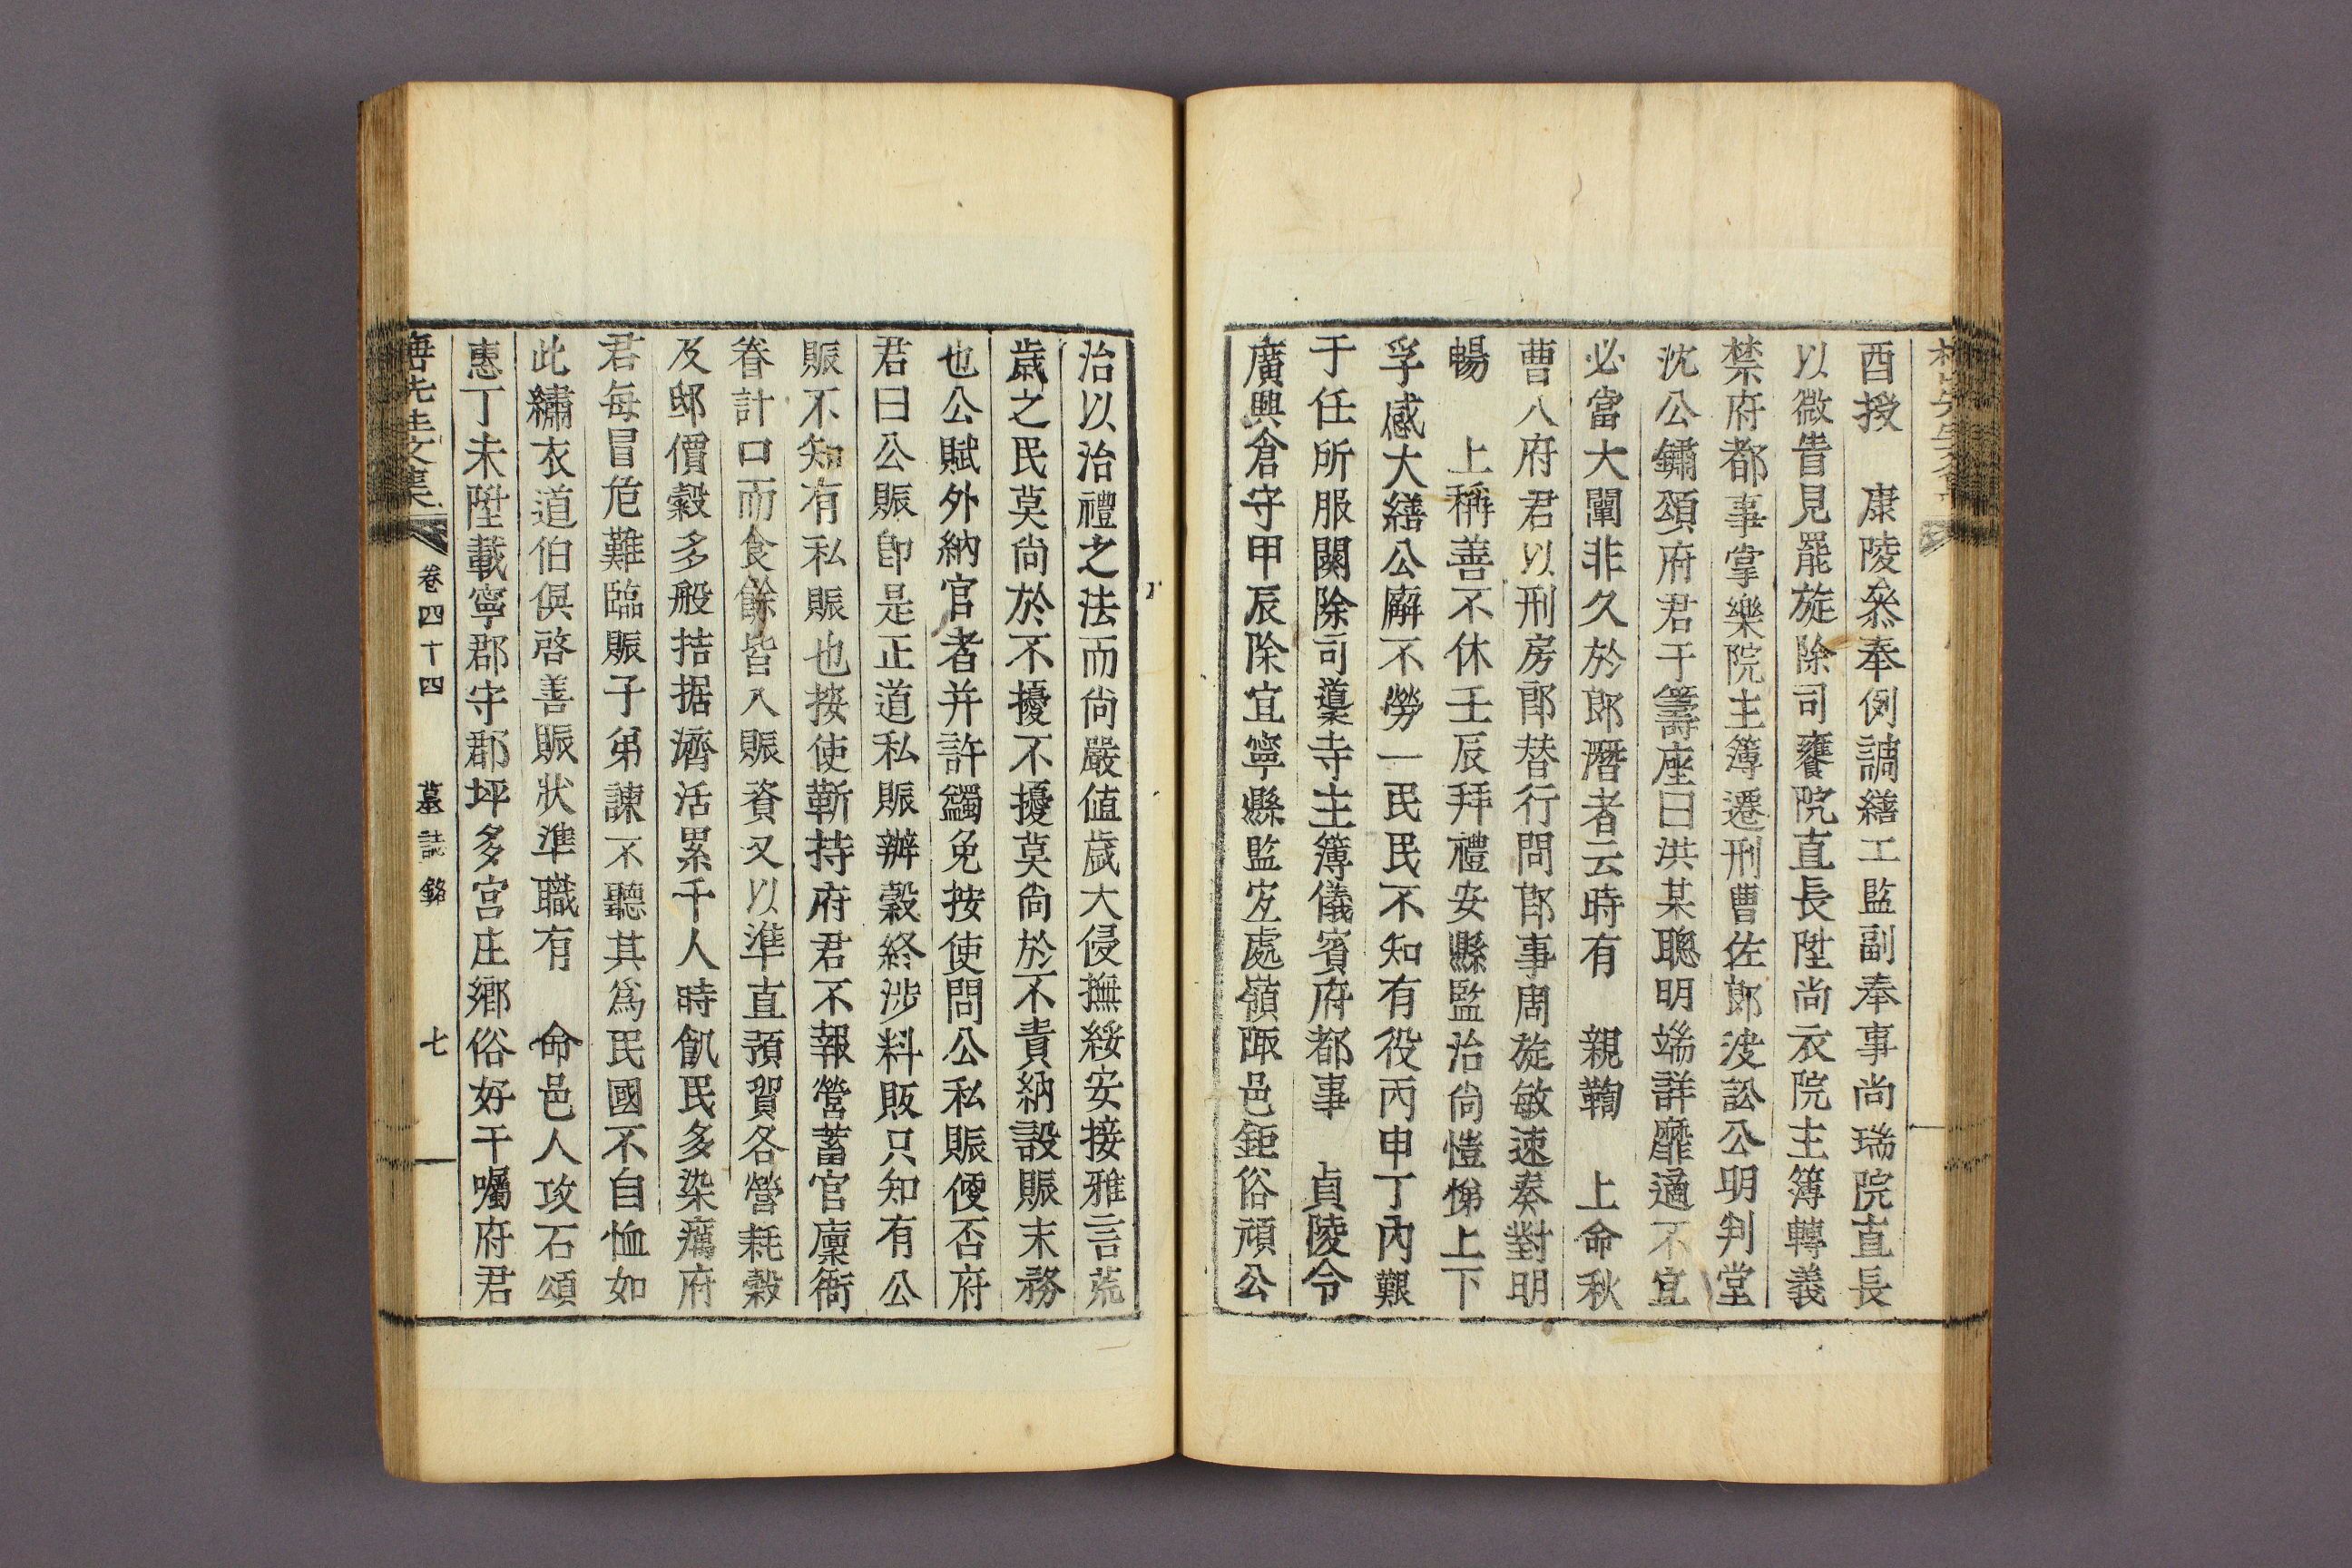 酉授　康陵叅奉例調繕工監副奉事尚瑞院直長
以微眚見罷旋除司饔院直長陞尚衣院主簿轉義
禁府都事掌樂院主簿遷刑曹佐郎決訟公明判堂
沈公鏽頌府君于籌座曰洪某聰明端詳靡適不宜
必當大闡非久於郎潛者云時有　親鞫　上命秋
曹八府君以刑房郎替行問郎事周旋敏速奏對明
暢　上稱善不休壬辰拜禮安縣監治尚愷悌上下
孚感大繕公廨不勞一民民不知有役丙申丁內艱
于任所服闋除司䆃寺主簿儀賓府都事　貞陵令
廣興倉守甲辰除宜寧縣監岌處嶺陬邑鉅俗頑公
治以治禮之法而尚嚴值歲大侵撫綏安接雅言荒
歲之民莫尚於不擾不擾莫尚於不責納設賑末務
也公賦外納官者并許蠲免按使問公私賑便否府
君曰公賑卽是正道私賑辦穀終涉料販只知有公
賑不知有私賑也按使靳持府君不報營蓄官廩衙
眷計口而食餘皆入賑資又以準直預貿各營耗穀
及邸價穀多般拮据濟活累千人時飢民多染癘府
君每冒危難臨賑子弟諫不聽其爲民國不自恤如
此繡衣道伯俱啓善賑狀準職有　命邑人攻石頌
惠丁未陞載寧郡守郡坪多宮庄鄉俗好干囑府君
先生文集
卷四十四　墓誌銘　七